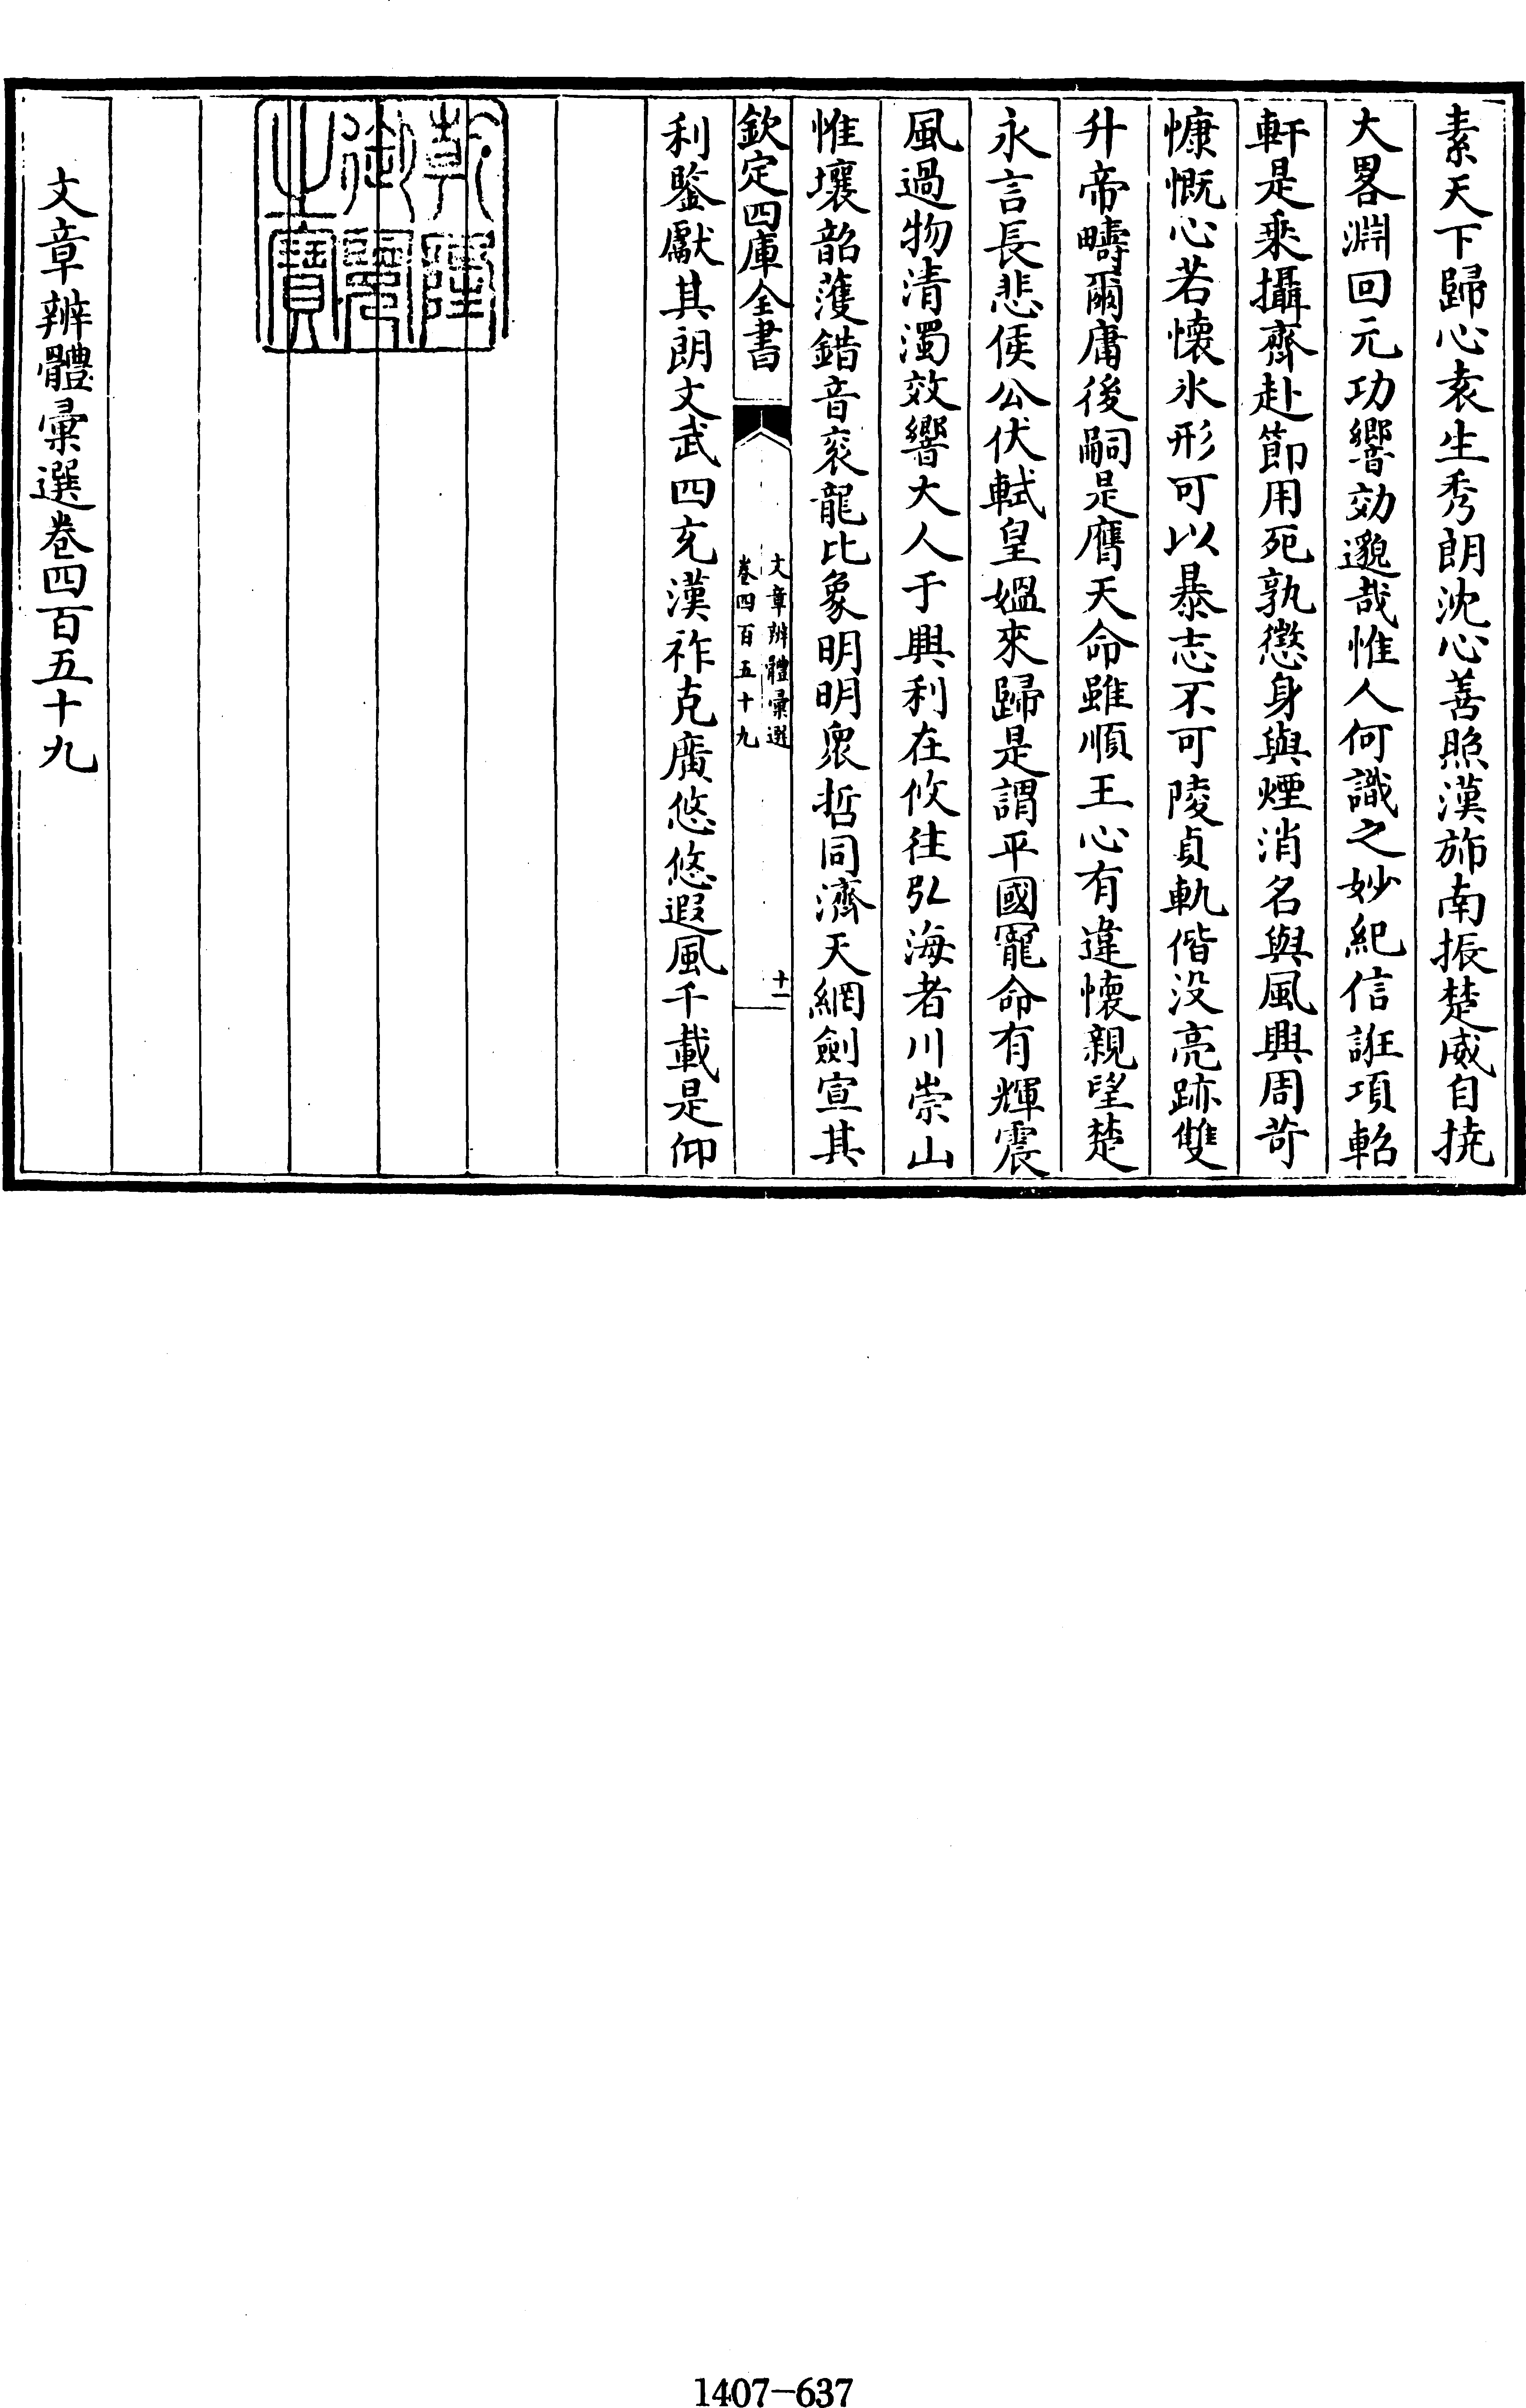 素天下歸心袁生秀朗沈心善照漢旆南振楚威自撓
大畧淵回元功響効邈哉惟人何識之妙紀信誑項軺
軒是乘攝齊赴節用死孰懲身與煙消名與風興周苛
慷慨心若懷氷形可以暴志不可陵貞軌偕没亮跡雙
升帝疇爾庸後嗣是膺天命雖順王心有違懷親望楚
永言長悲侯公伏軾皇媼來歸是謂平國寵命有輝震
風過物清濁效響大人于興利在攸往弘海者川崇山
惟壤韶頀錯音衮龍比象明明衆哲同濟天網劍宣其
欽定四庫全書
文章辨體彙選
卷四百五十九
十一
利鑒獻其朗文武四充漢祚克廣悠悠遐風千載是仰
乾隆御覽之寶
文章辨體彙選卷四百五十九
1407-637